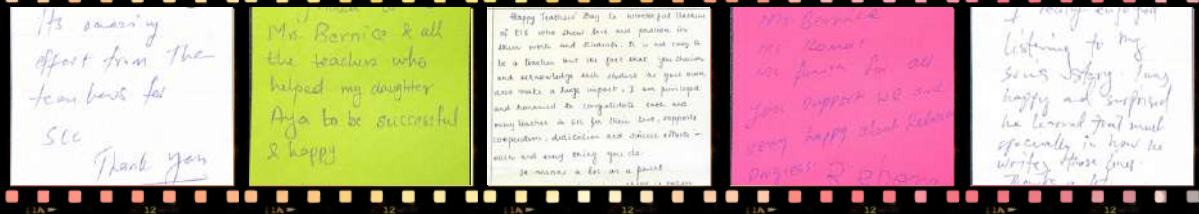 Its amazing
effort from the
teachers for
SLC
Thank you
Ms. Bernice & all
the teachers who
helped my daughter
Aya to be successful
& happy
Happy Teachers' Day to wonderful teachers
of EIS who show love and passion in
their work and students. It is not easy to
be a teacher but the fact that you
and acknowledge each student in your own
area make a huge impact. I am privileged
and honoured to congratulate each and
every teacher in EIS for their love, support
cooperation, dedication and sincere efforts -
each and every thing you do.
It means a lot as a parent
Ms Bernice
for all
your support we are
very happy about
progress.
I really enjoyed
listening to my
sons story. I was
happy and surprised
he learned that much
specially in how he
writes those lines.
Thanks a lot